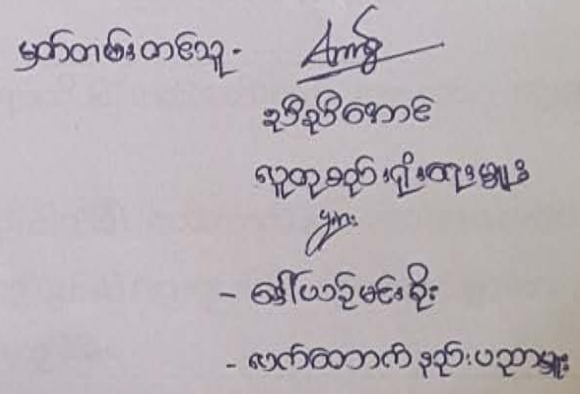 မှတ်တမ်းတင်သူ -
ညီညီအောင်
လူထုစည်းရုံးရေးမှူး
များ
- ဒေါ်ယဉ်မင်းစိုး
- လက်ထောက်နည်းပညာမှူး